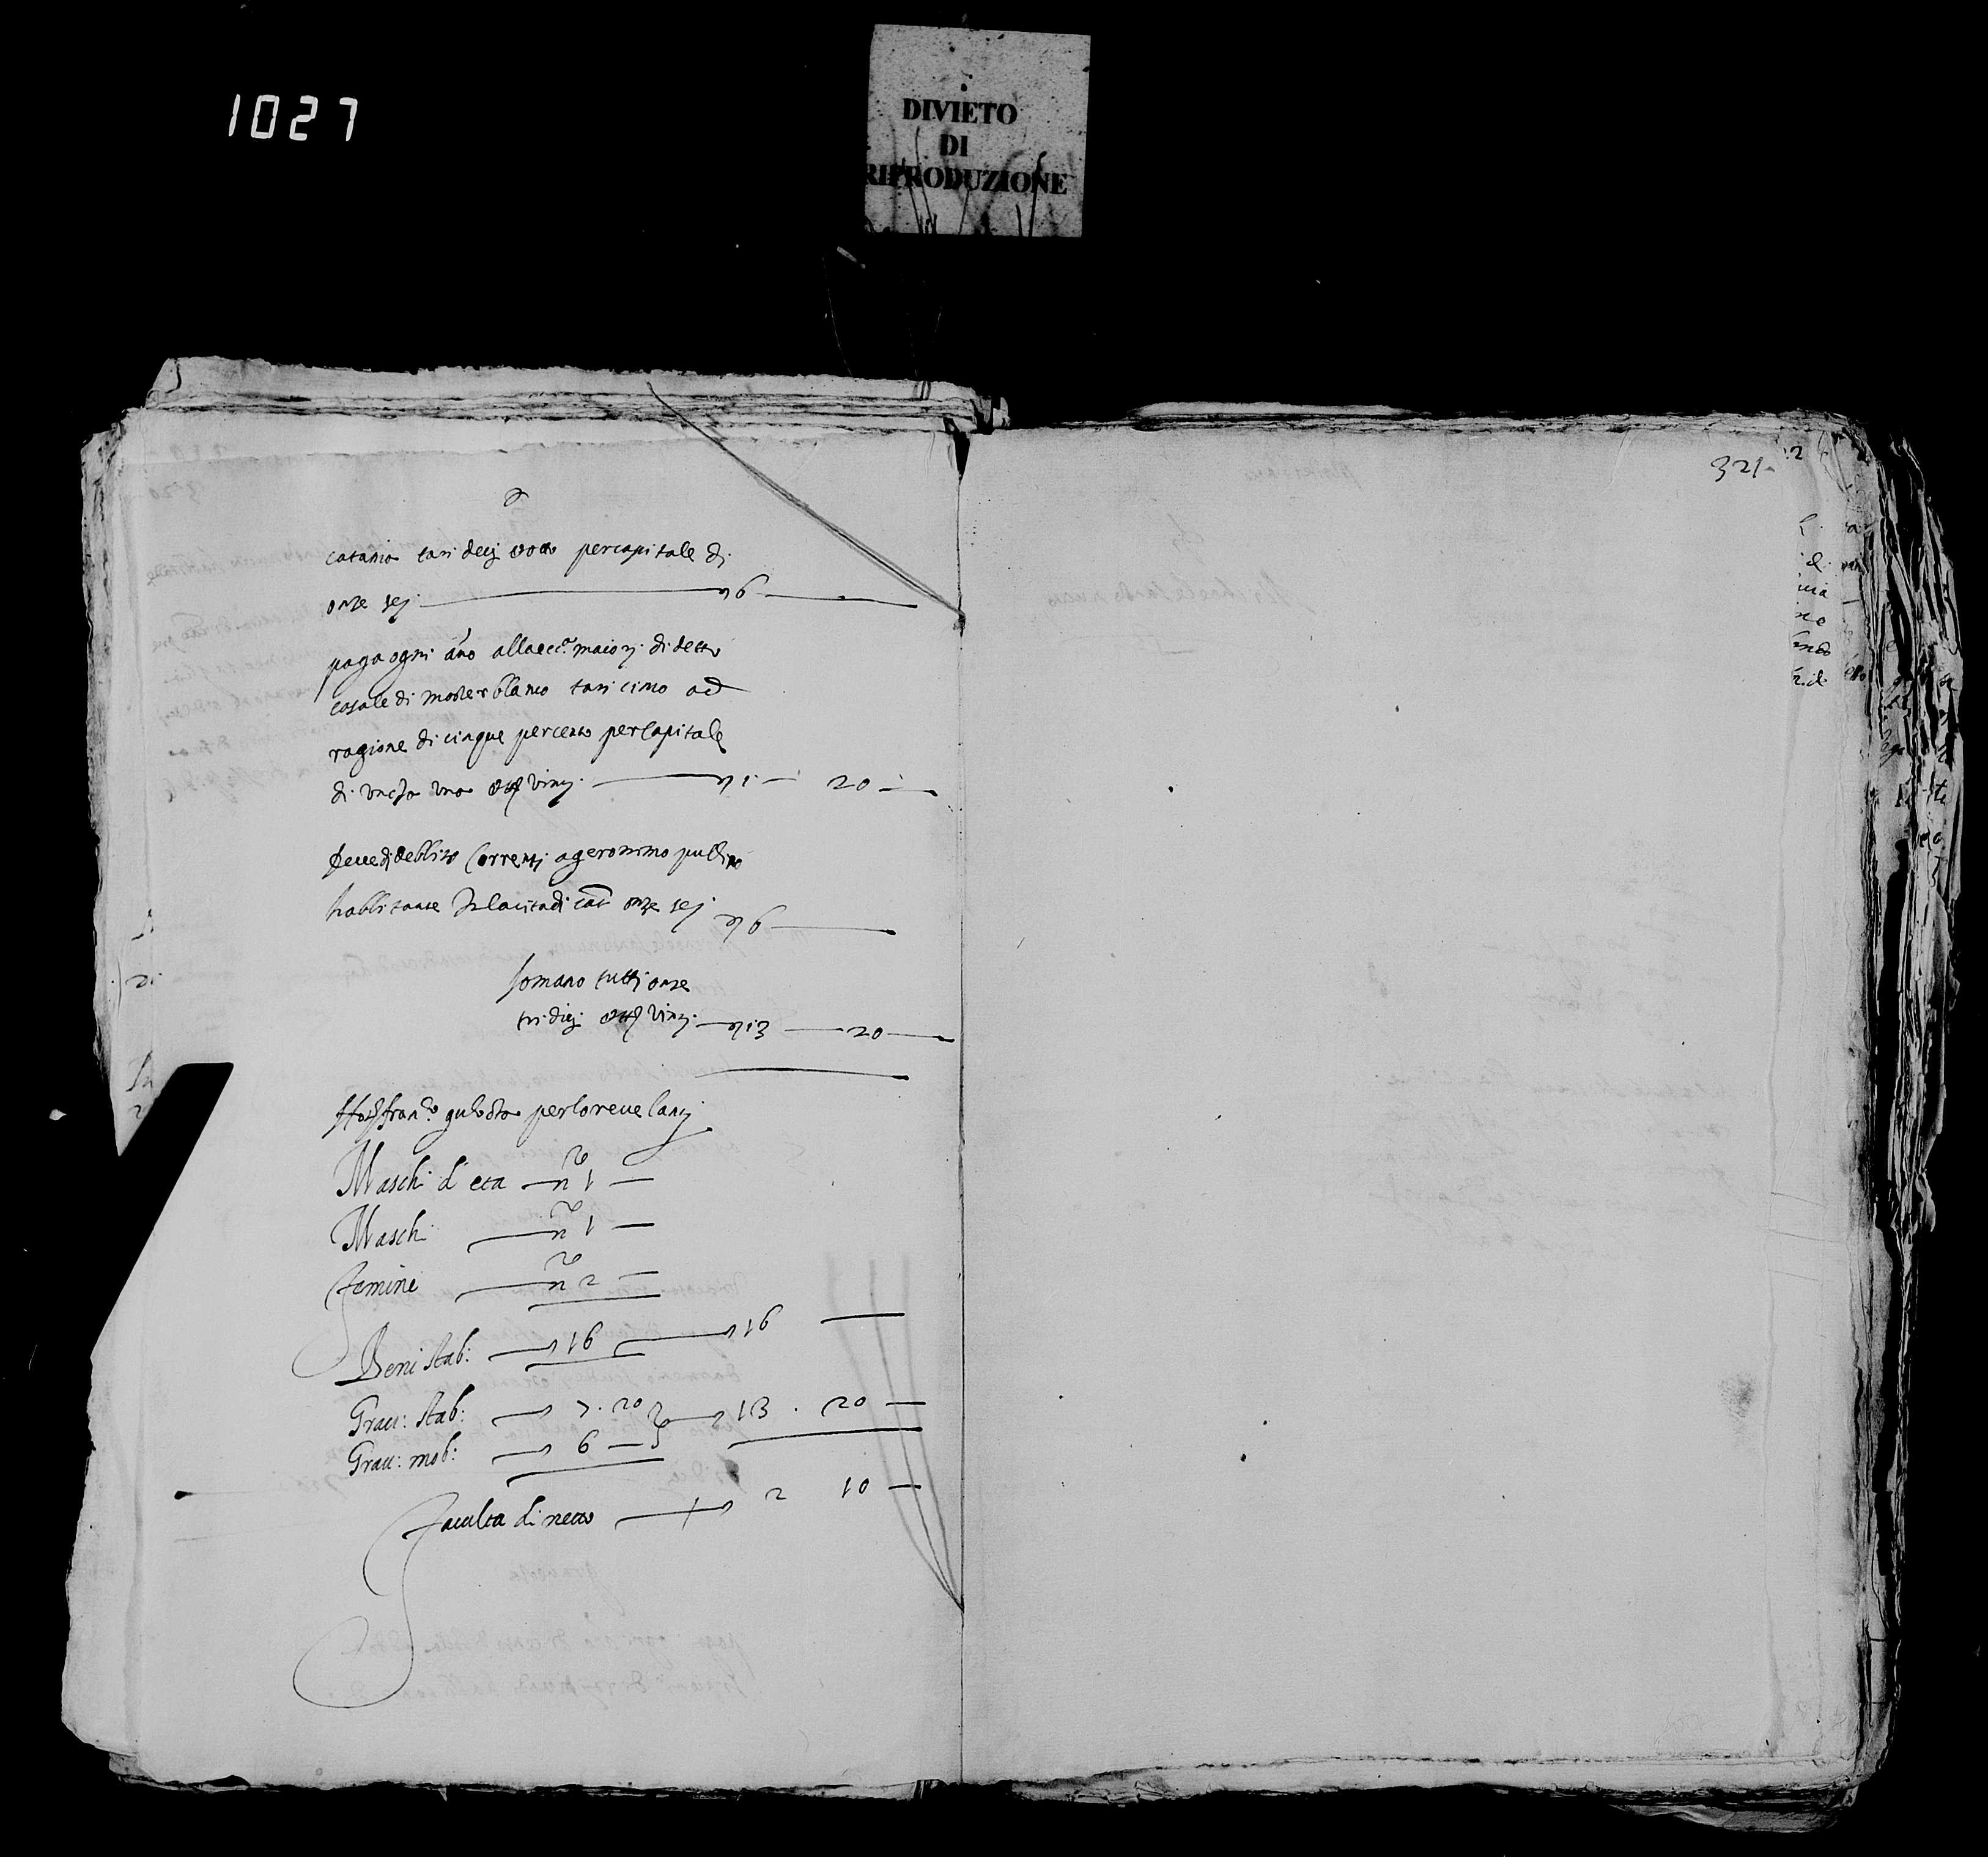 1027
DIVIETO
DI
RIPRODUZIONE
321
catania tari decj ootto per capitale di
onze sej 6
paga ogni año alla ecc.a maiorj di detto
casale di monsterblanco tari cinco ad
ragione di cinque percento per capitale
di unza una vinti 1 20
deve di debbito correnti a geronimo
habbitante in la cita di cat onze sej 6
somano tutti onze
tridicj vinti 13 20
fran.co per lo revelantj
Maschi d eta n.ro 1
Maschi n.ro 1
femine n.ro 2
Beni stab: 16 16
Grau: stab: 7. 20 13. 20
Grau: mob: 6
faculta di netto 2 10